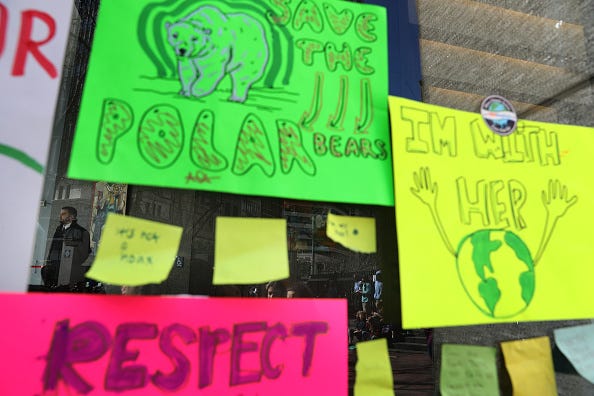 OR
SAVE
THE
POLAR
BEARS
I'M WITH
HER
IT'S NOT
A
HOAX
RESPECT